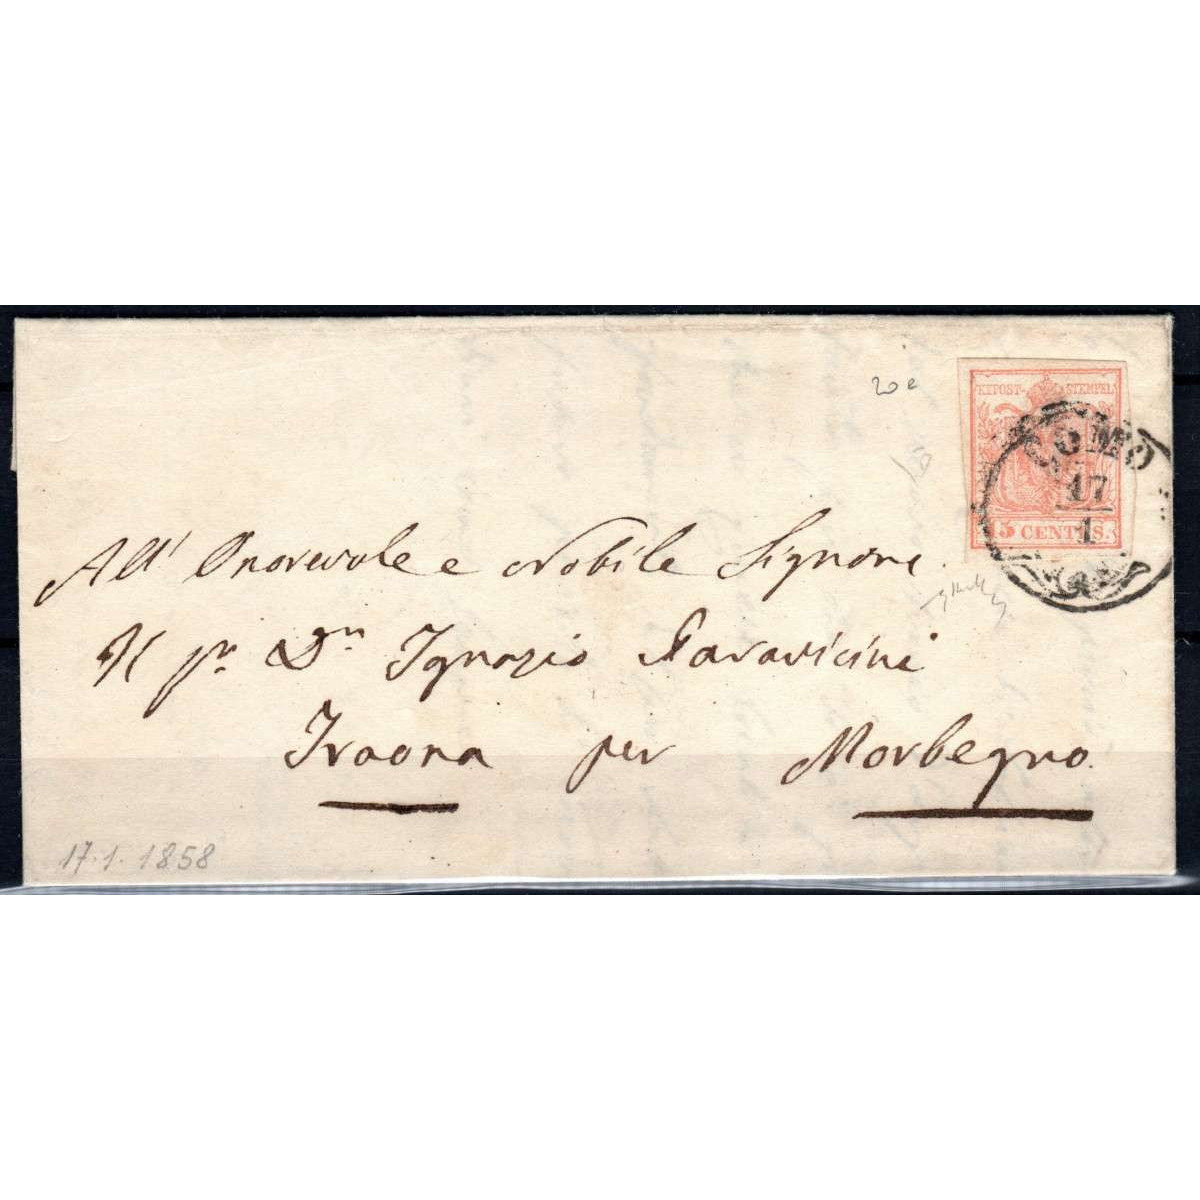 KKPOST-STEMPEL
15 CENTES.
COMO
17
1
20 e
All' Onorevole e Nobile Signore
Il pr Dn Ignazio Paravicini
Traona per Morbegno.
17.1.1858